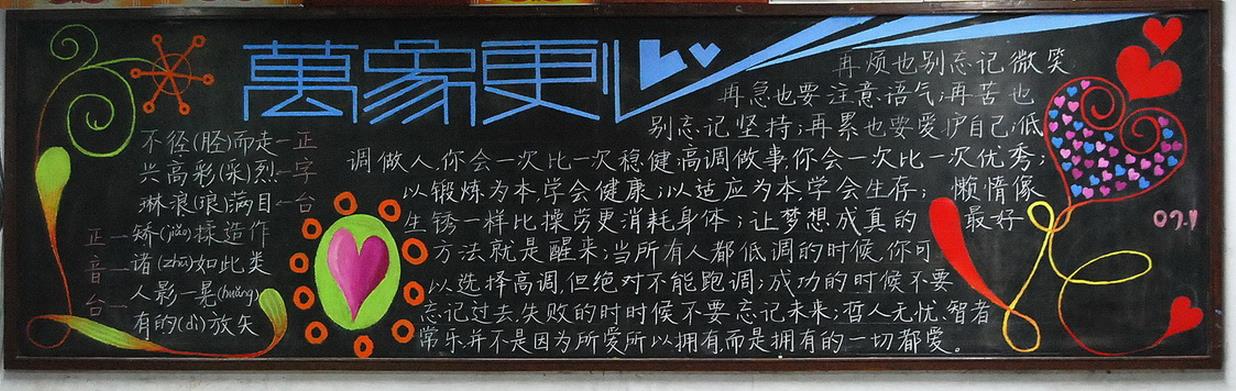 萬象更
不径(胫)而走-正
兴高彩(采)烈-字
琳浪(琅)满目-台
正-矫(jiǎo)揉造作
音-诸(zhū)如此类
台-人影一晃(huǎng)
有的(dì)放矢
再烦也别忘记微笑
再急也要注意语气;再苦也
别忘记坚持;再累也要爱护自己;低
调做人,你会一次比一次稳健,高调做事,你会一次比一次优秀;
以锻炼为本,学会健康;以适应为本,学会生存; 懒惰像
生锈一样比操劳更消耗身体;让梦想成真的 最好
方法就是醒来;当所有人都低调的时候,你可
以选择高调,但绝对不能跑调;成功的时候不要
忘记过去,失败的时时候不要忘记未来;哲人无忧,智者
常乐.并不是因为所爱所以拥有,而是拥有的一切都爱。
09.1